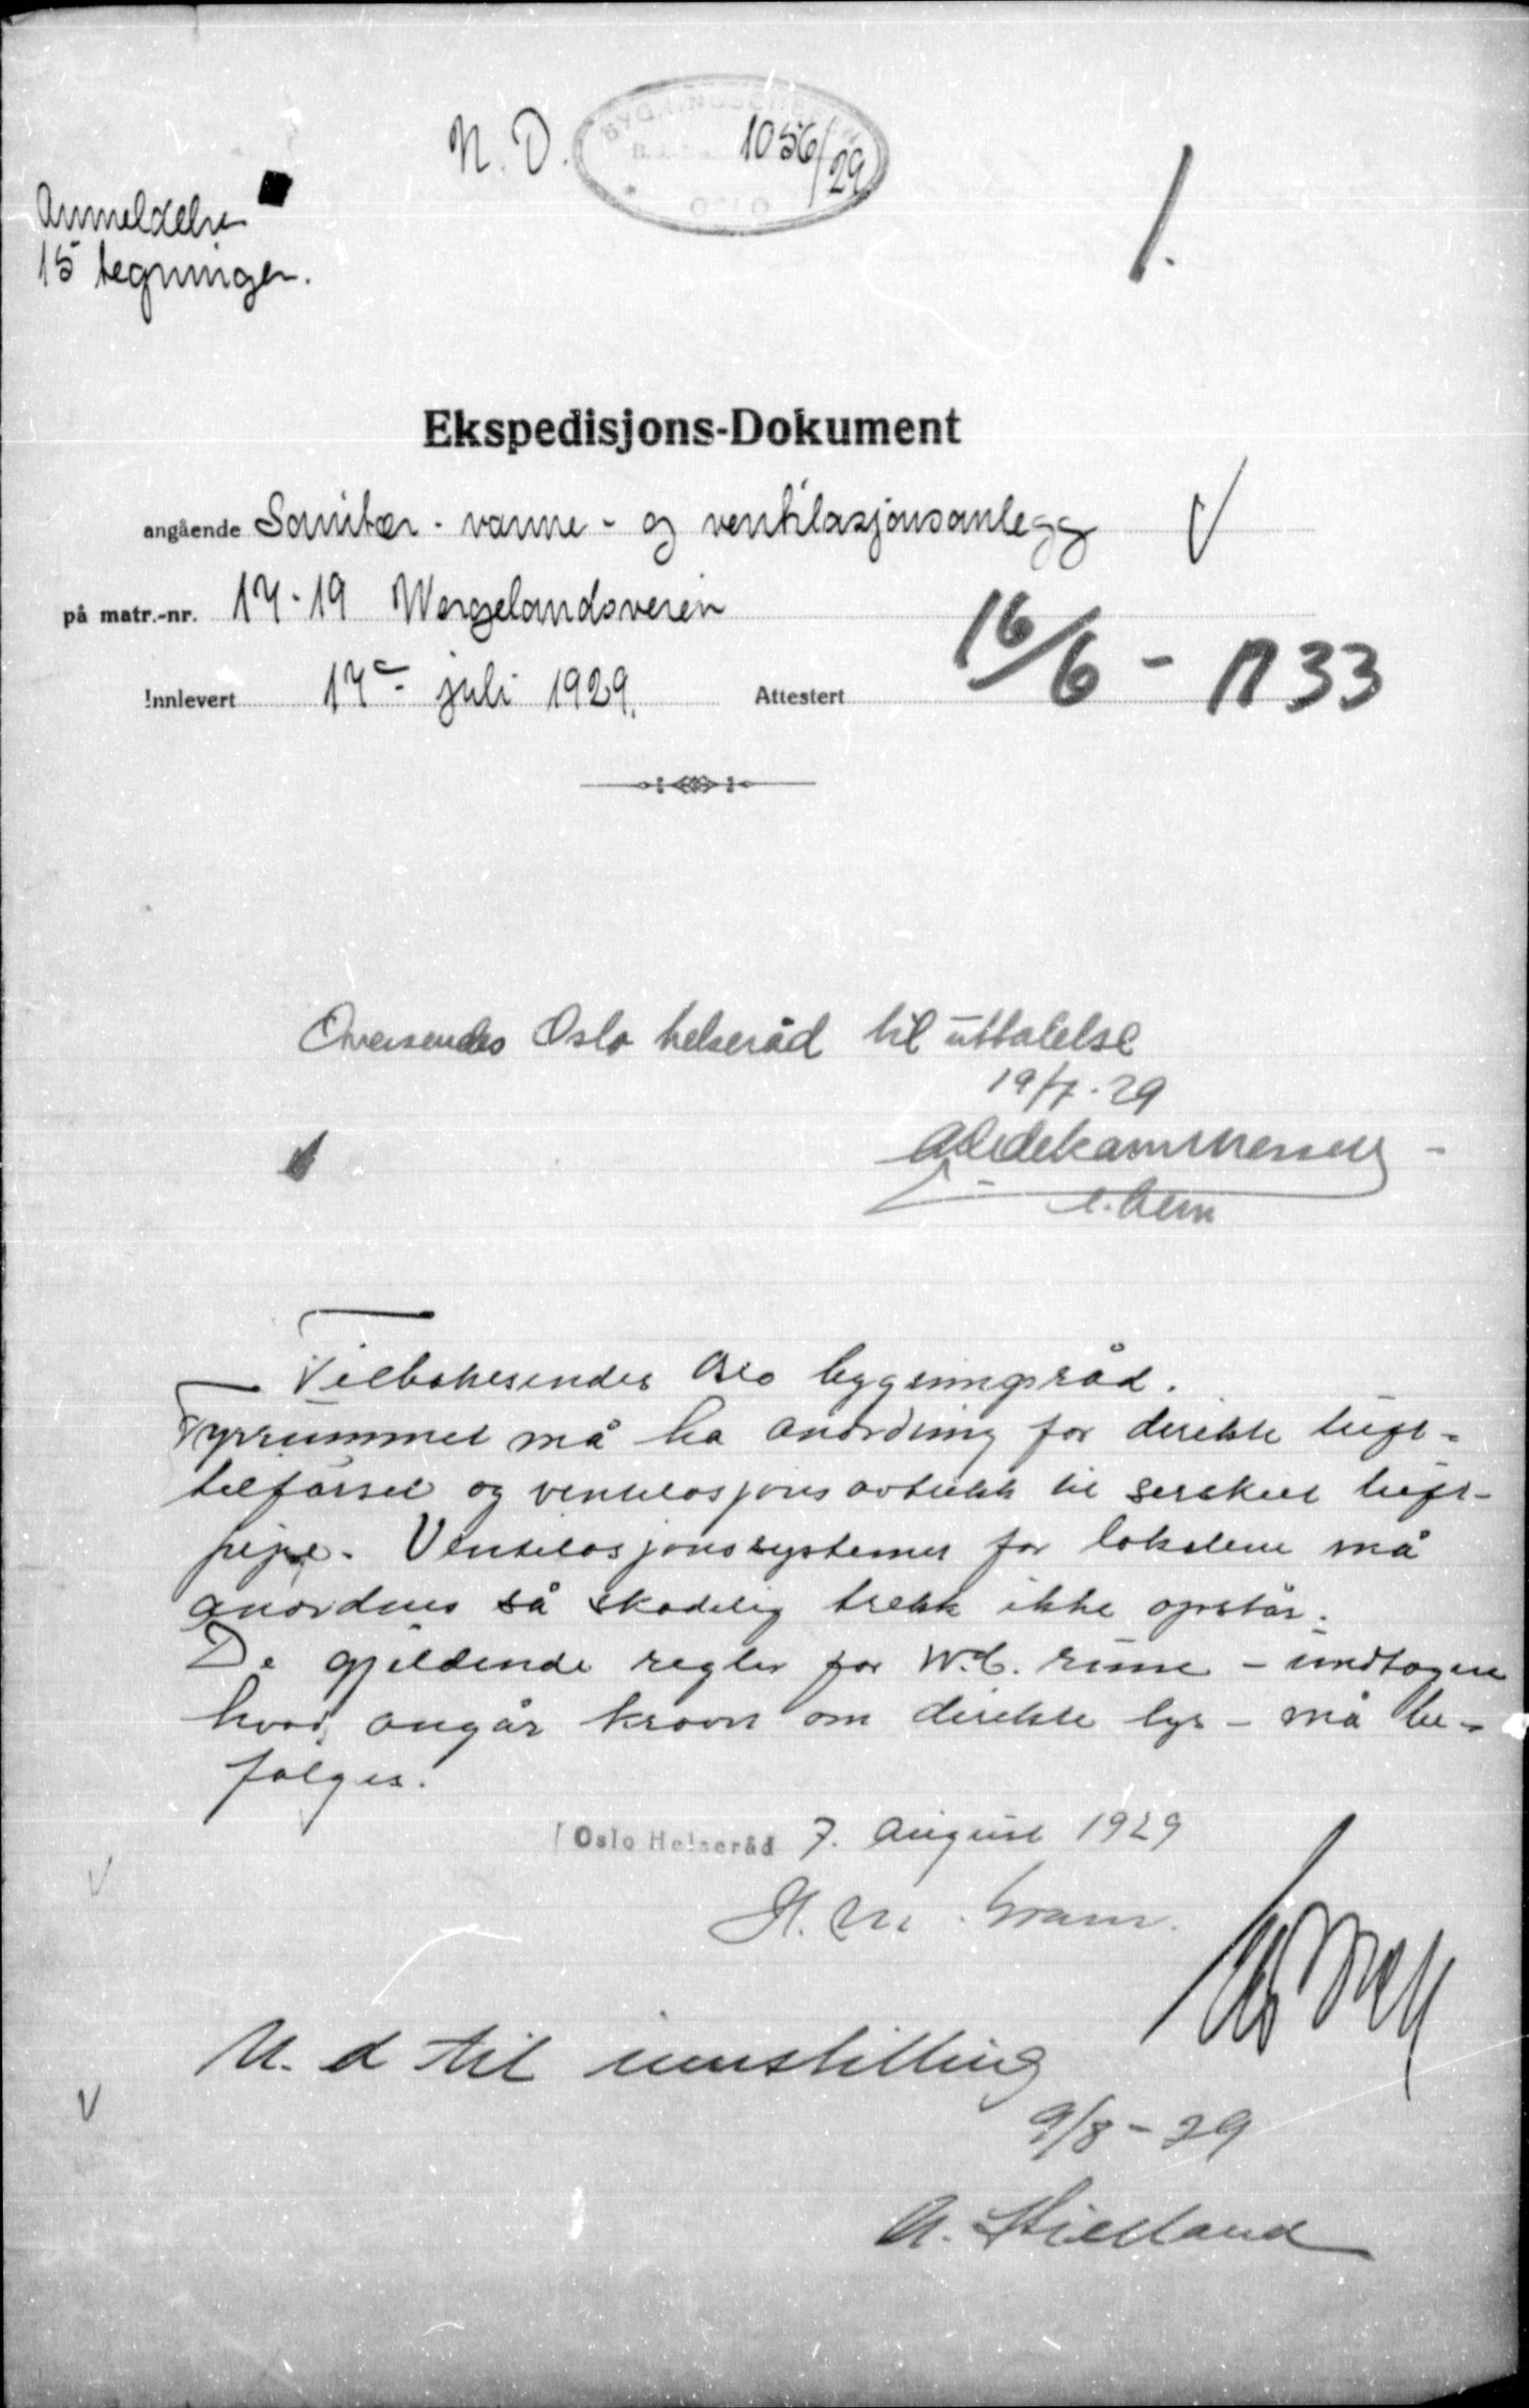 N. D.
1056/29
OSLO
1.
Anmeldelse
15 tegninger.
Ekspedisjons-Dokument
angående Sanitær - varme - og ventilasjonsanlegg
på matr.-nr. 17-19 Wergelandsveien
Innlevert 17de juli 1929. Attestert 16/6 - 1933
Oversendes Oslo helseråd til uttalelse
19/7 - 29
Tilbakesendes Oslo bygningsråd.
Fyrrummet må ha anordning for direkte luft-
tilførsel og ventilasjonsavtrekk til særskilt luft-
pipe. Ventilasjonssystemet for lokalene må
anordnes så skadelig trekk ikke opstår.
De gjeldende regler for W.C. rume - undtagen
hvad angår kravet om direkte lys - må be-
følges.
Oslo Helseråd 7. August 1929
H. M. Gram.
N. d til innstilling
9/8 - 29
A. Kielland